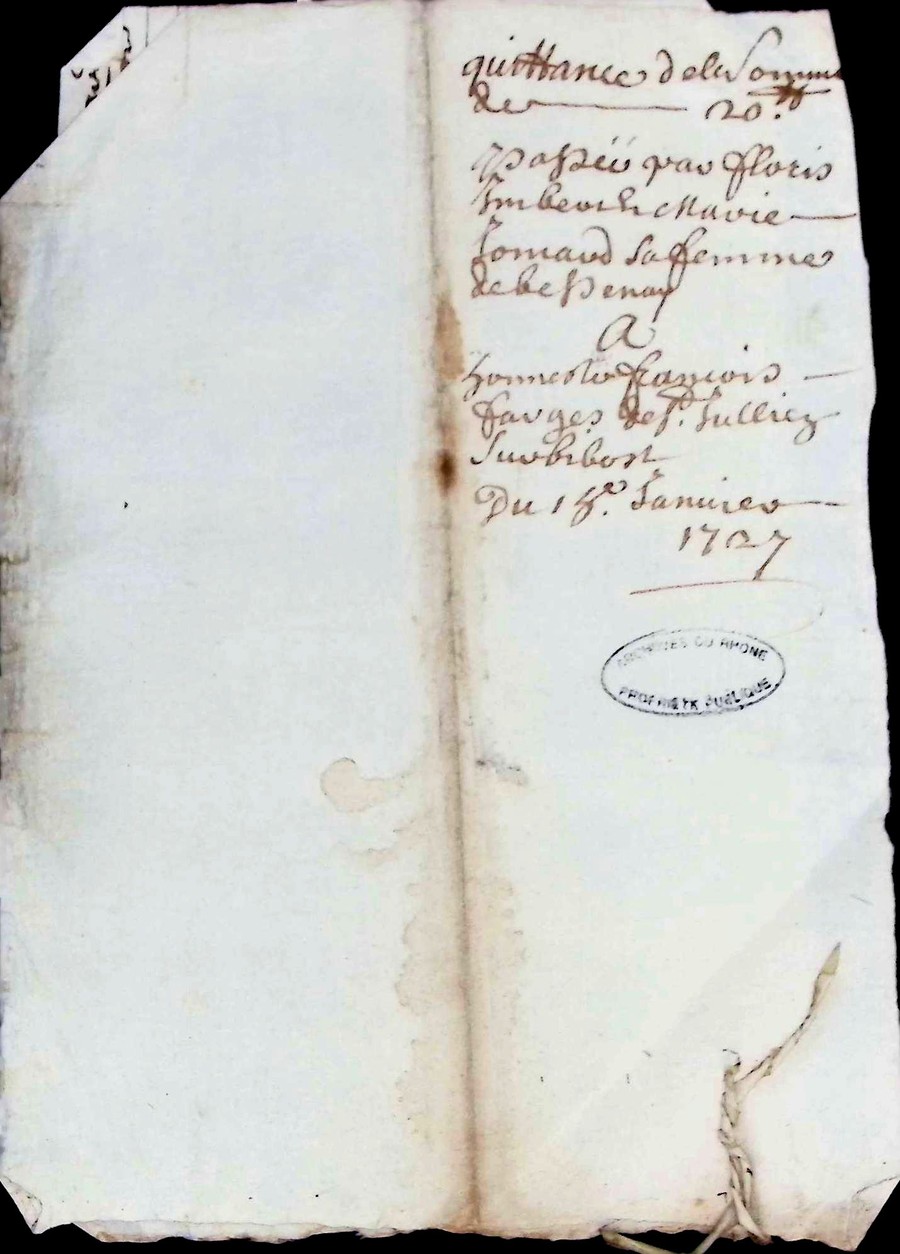 quittance dela Somme
de 20.ᵗᵗ
passéë par floris
Imbert & Marie
Jomard sa femme
de bessenay
A
honneste françois
farges de St. Jullien
Sur bibost
Du 15.e Januier
1727
ARCHIVES DU RHONE
PROPRIETE PUBLIQUE